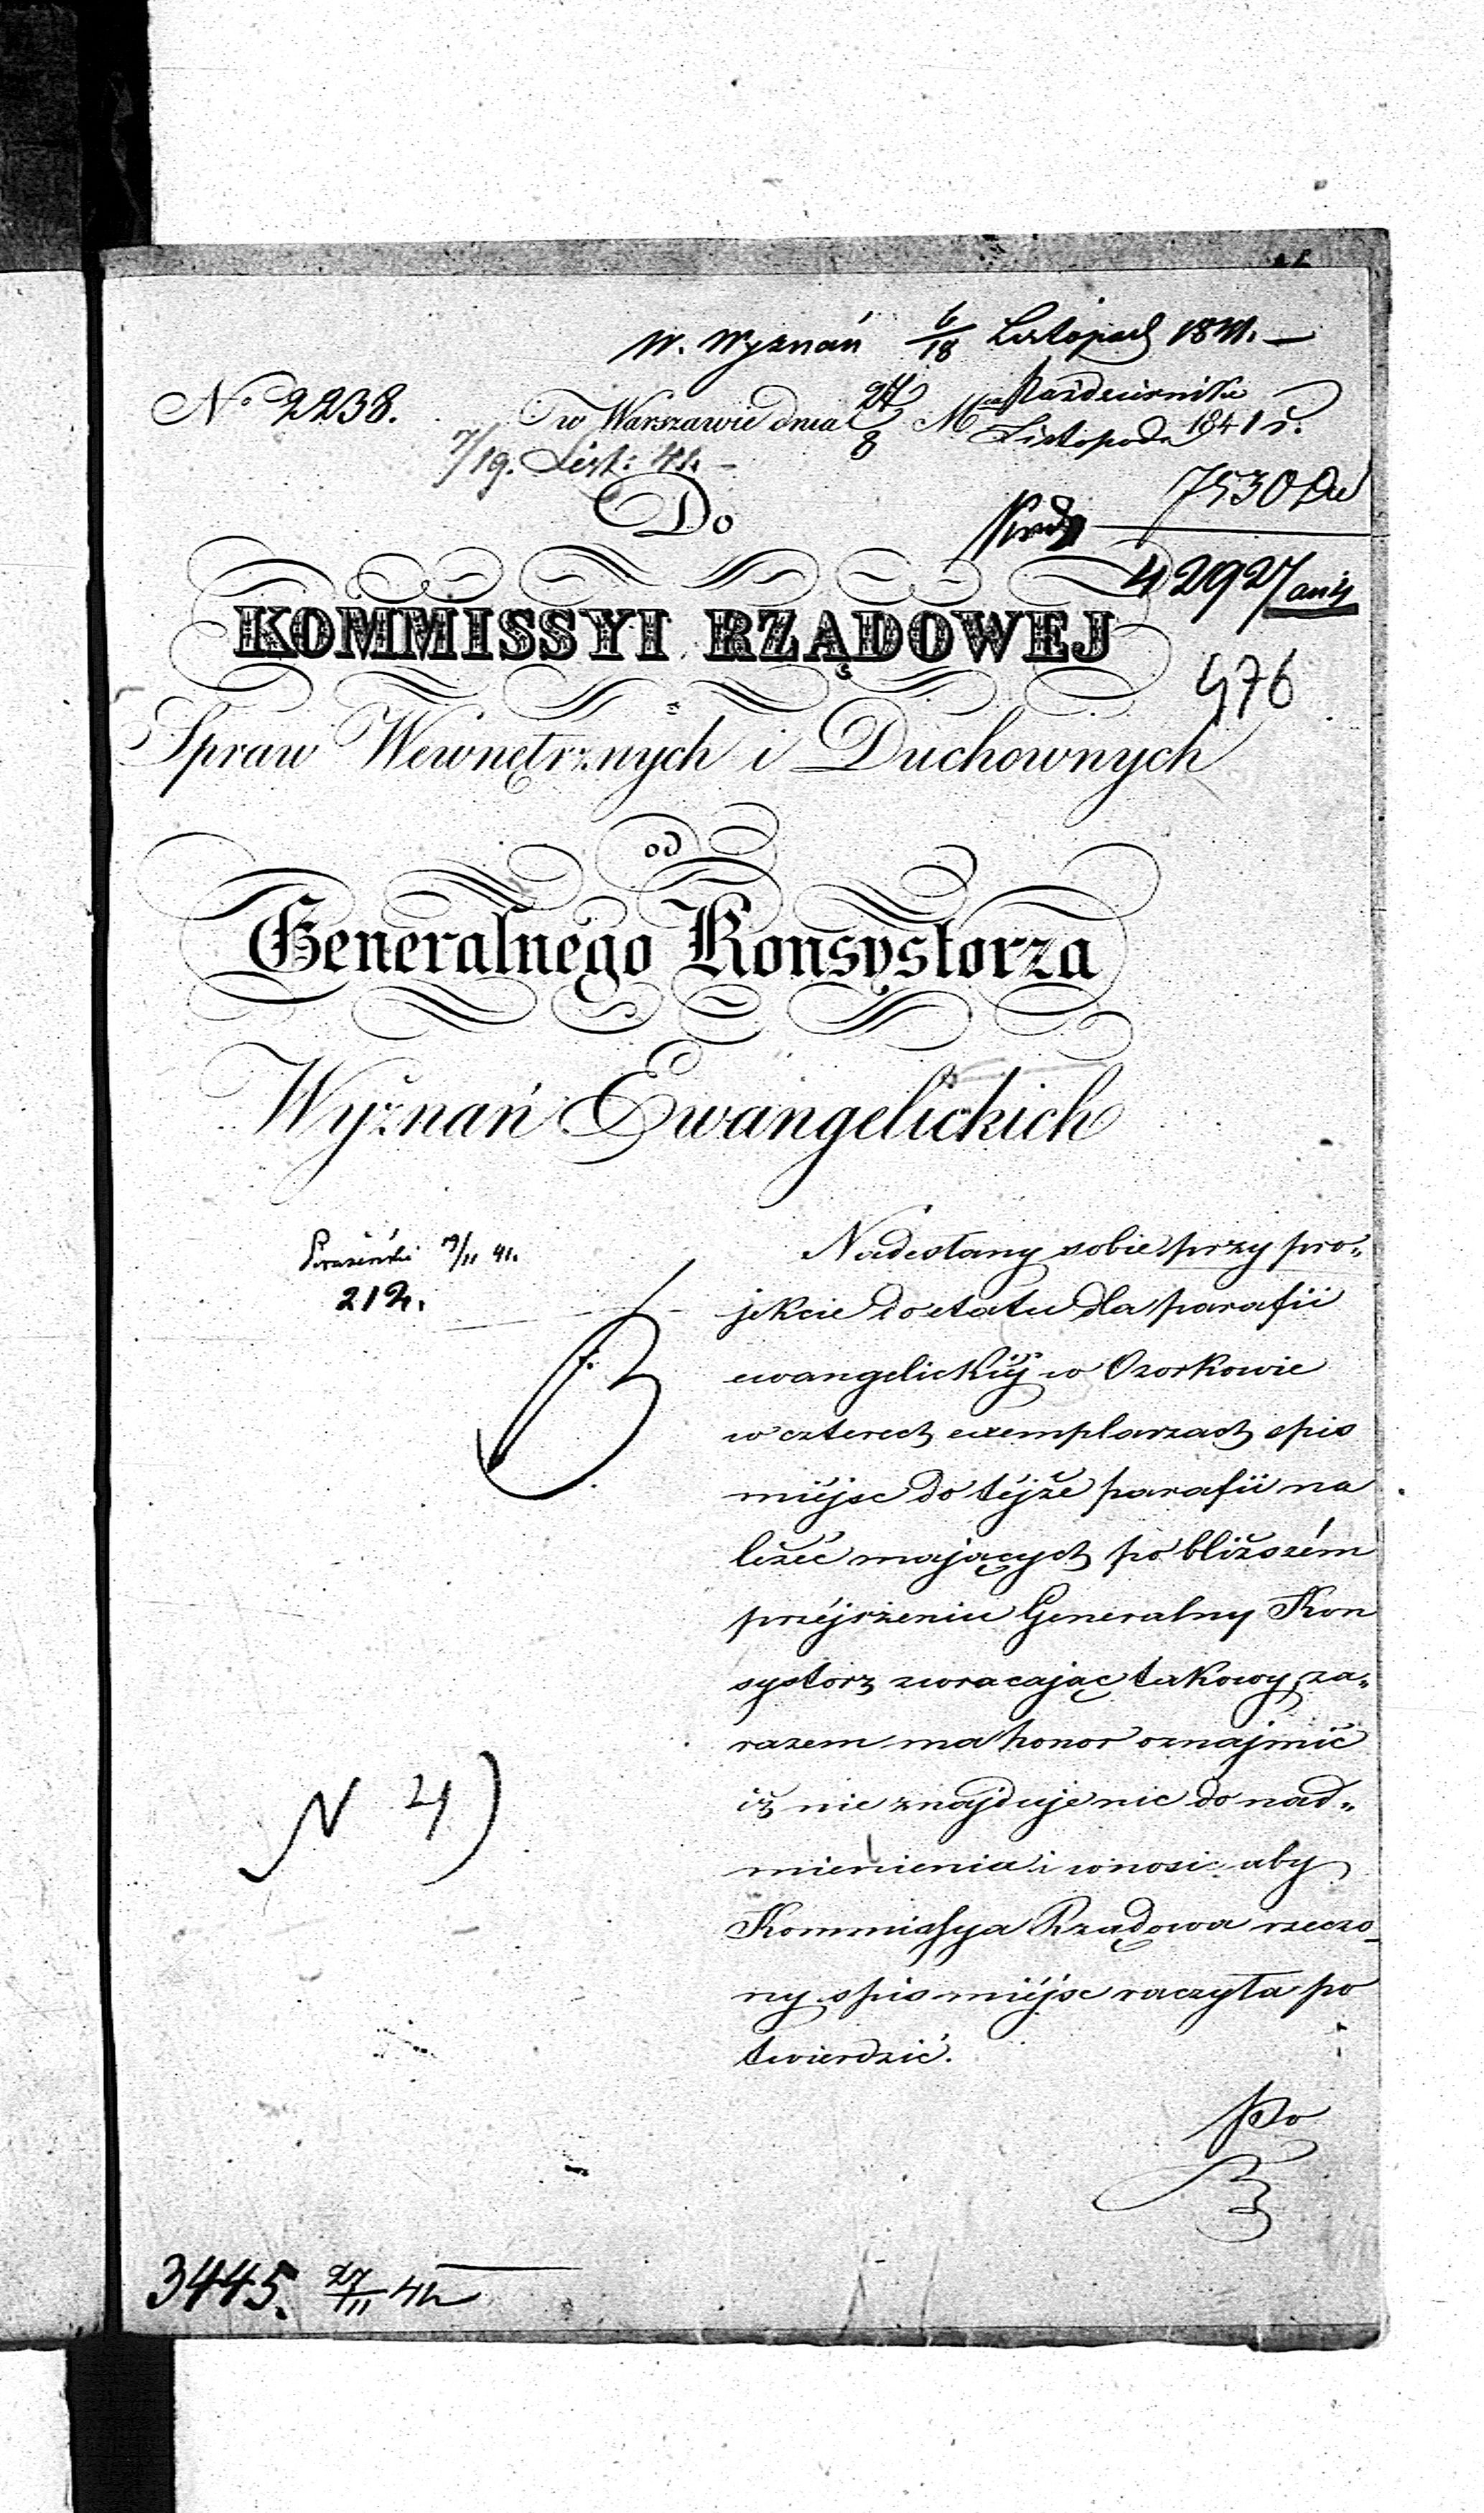 W. Wyznań 6/18 Listopad 1841. —
No 2238.
w Warszawie dnia 27/8 Mca Października
Listopada 1841 r.
7/19. List: 41. —
7530
Do
42927
KOMMISSYI RZĄDOWEJ
476
Spraw Wewnętrznych i Duchownych
od
Generalnego Konsystorza
Wyznań Ewangelickich
19/11 41.
212.
Nadesłany sobie przy pro„
jekcie do etatu dla parafii
ewangelickiéj w Ozorkowie
w czterech exemplarzach spis
miéjsc do téjże parafii na
leżéć mających po bliższém
przéjrzeniu Generalny Kon
systorz zwracając takowy, za„
razem ma honor oznajmić
iż nie znajduje nic do nad„
mienienia i wnosi aby
Kommissya Rządowa rzeczo_
ny spis miéjsc raczyła po
twierdzić.
N 4)
3445. 27/11 41